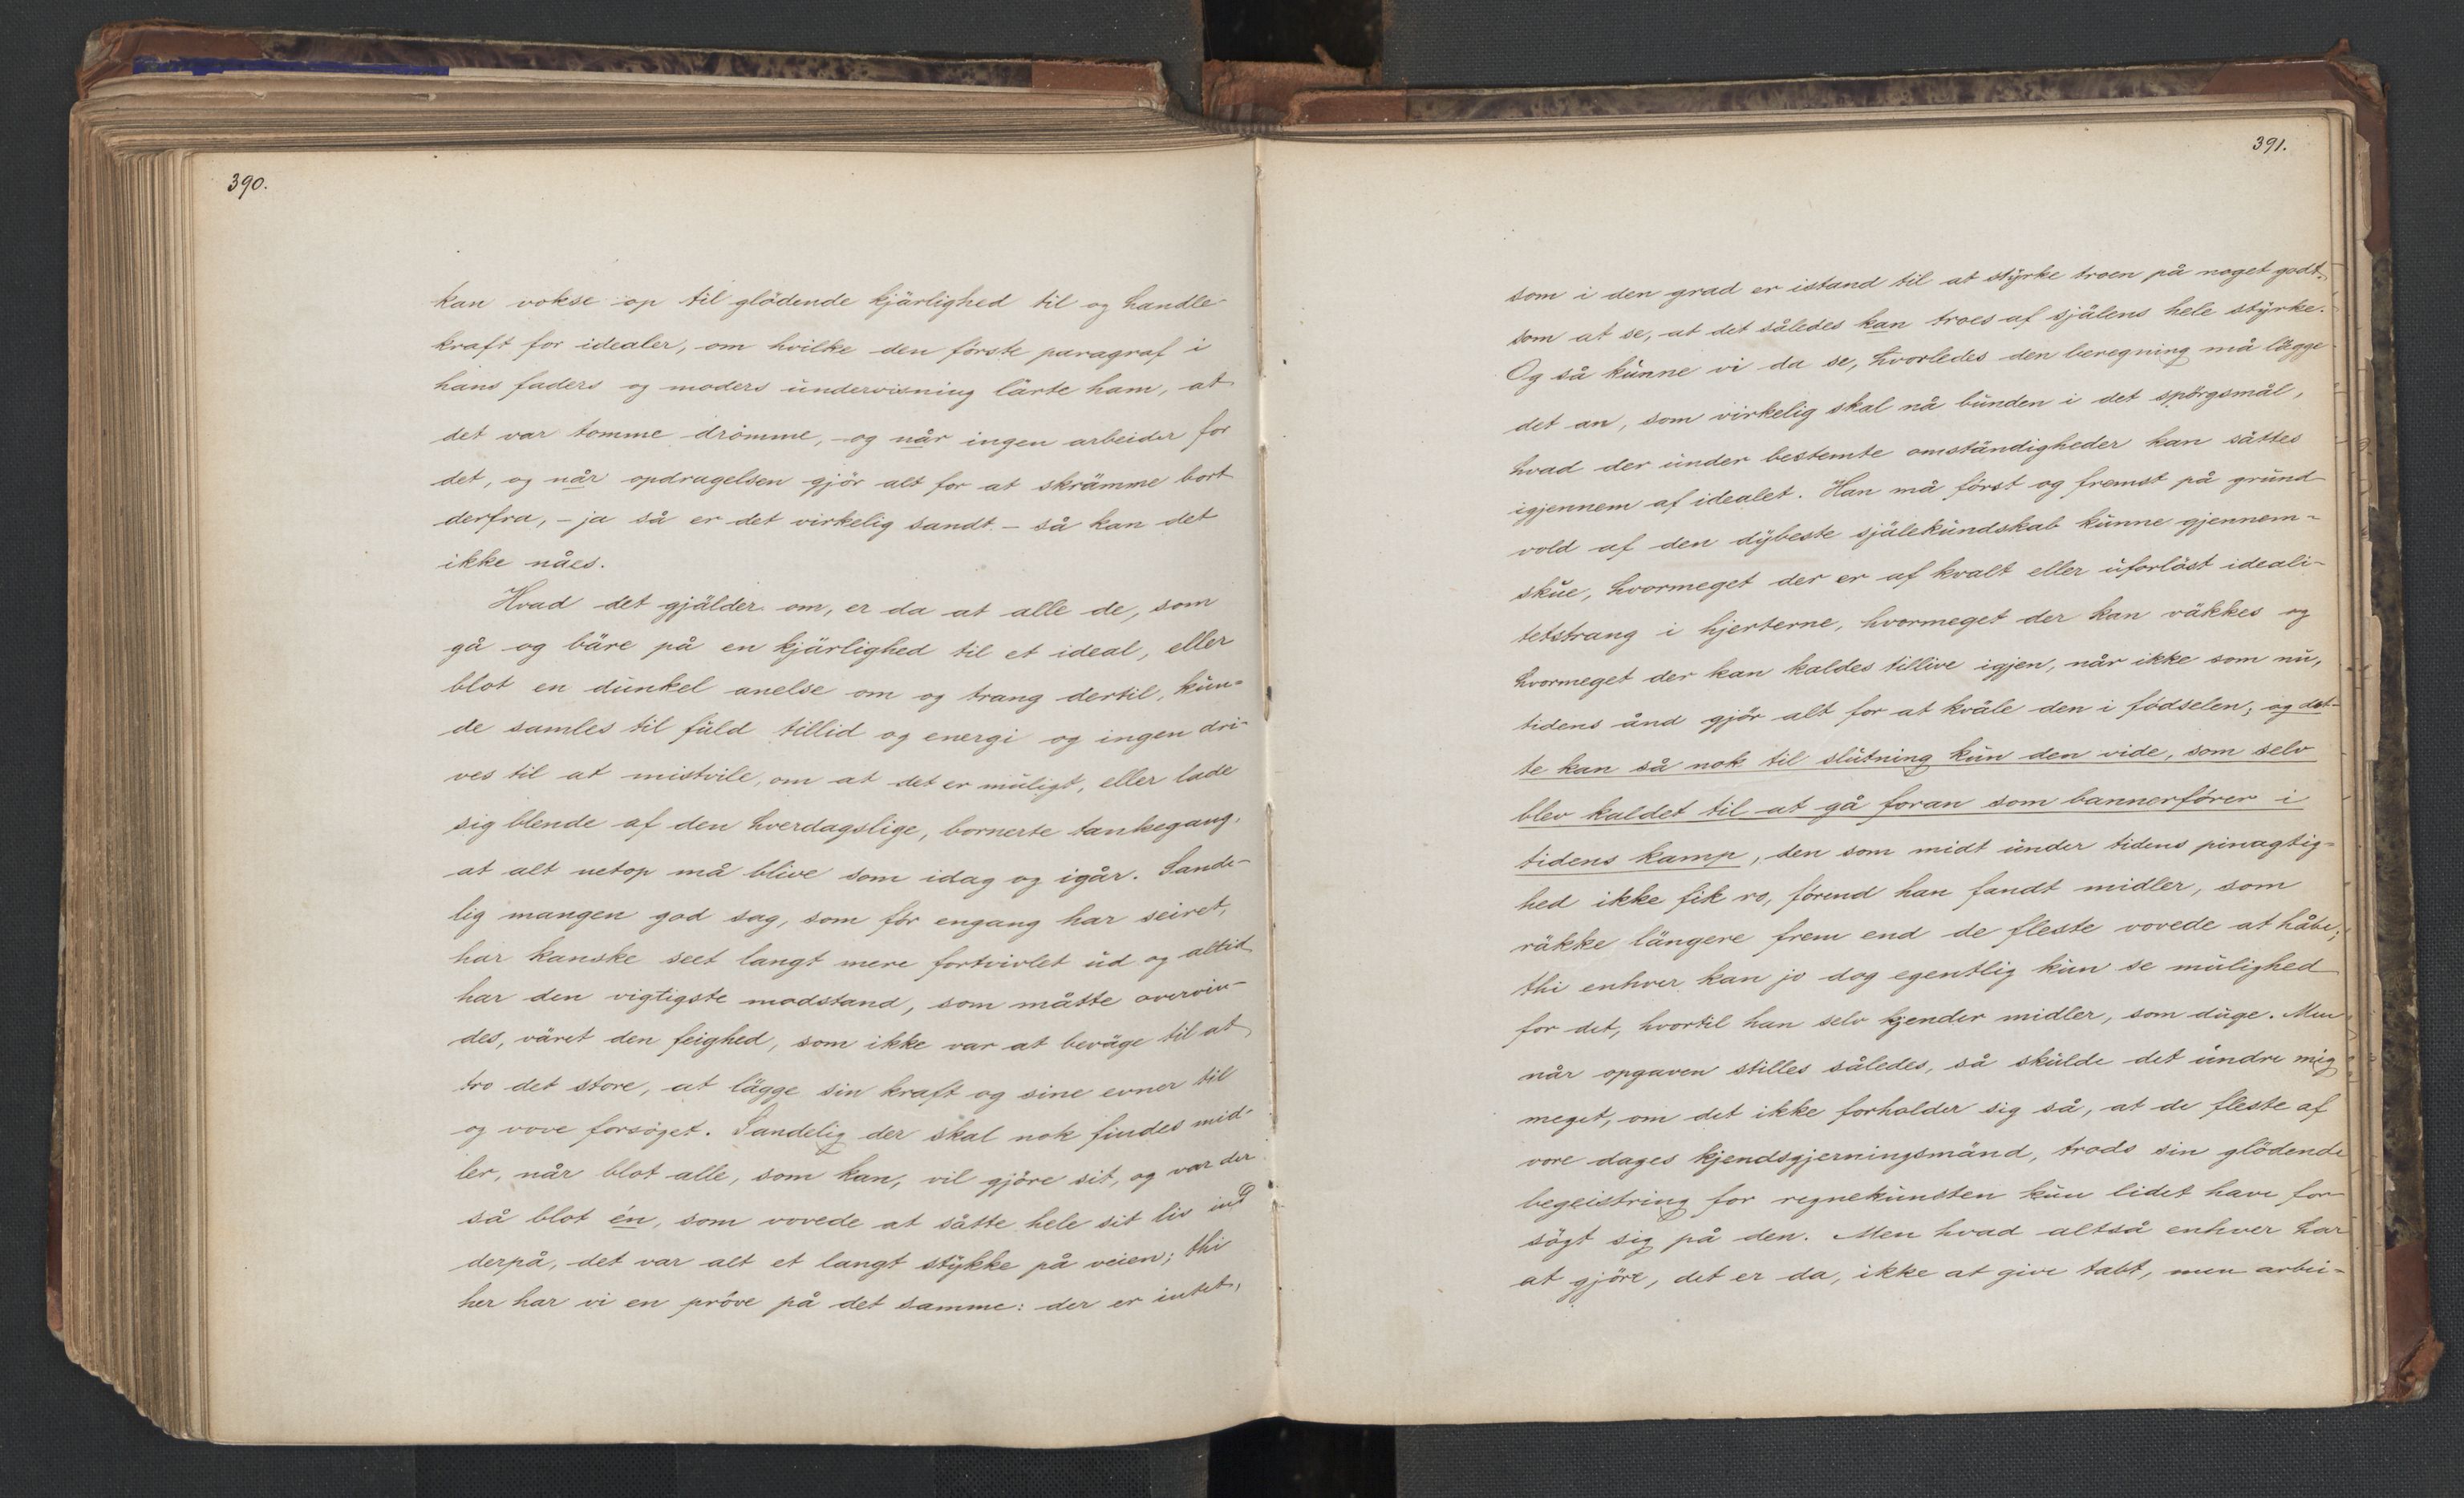 390.
kan vokse op til glödende kjärlighed til og handle-
kraft for idealer, om hvilke den förste paragraf i
hans faders og moders undervisning lärte ham, at
det var tomme drömme, – og når ingen arbeider for
det, og når opdragelsen gjör alt for at skrämme bort
derfra, – ja så er det virkelig sandt – så kan det
ikke nåes.
Hvad det gjälder om, er da at alle de, som
gå og bäre på en kjärlighed til et ideal, eller
blot en dunkel anelse om og trang dertil, kun-
de samles til fuld tillid og energi og ingen dri-
ves til at mistvile, om at det er muligt, eller lade
sig blende af den hverdagslige, bornerte tankegang,
at alt netop må blive som idag og igår. Sande-
lig mangen god sag, som för engang har seiret,
har kanske seet langt mere fortvivlet ud og altid
har den vigtigste modstand, som måtte overvin-
des, väret den feighed, som ikke var at beväge til at
tro det store, at lägge sin kraft og sine evner til
og vove forsöget. Sandelig der skal nok findes mid-
ler, når blot alle, som kan, vil gjöre sit, og var der
så blot én, som vovede at sätte hele sit liv ind
derpå, det var alt et langt stykke på veien; thi
her har vi en pröve på det samme: der er intet,
391.
som i den grad er istand til at styrke troen på noget godt,
som at se, at det således kan troes af själens hele styrke.
Og så kunne vi da se, hvorledes den beregning må lägge
det an, som virkelig skal nå bunden i det spörgsmål,
hvad der under bestemte omständigheder kan sättes
igjennem af idealet. Han må först og fremst på grund
vold af den dybeste själekundskab kunne gjennem-
skue, hvormeget der er af kvalt eller uforlöst ideali-
tetstrang i hjerterne, hvormeget der kan väkkes og
hvormeget der kan kaldes tillive igjen, når ikke som nu,
tidens ånd gjör alt for at kväle den i födselen; og det-
te kan så nok til slutning kun den vide, som selv
blev kaldet til at gå foran som bannerförer i
tidens kamp, den som midt under tidens pinagtig-
hed ikke fik ro, förend han fandt midler, som
räkke längere frem end de fleste vovede at håbe;
thi enhver kan jo dog egentlig kun se mulighed
for det, hvortil han selv kjender midler, som duge. Men
når opgaven stilles således, så skulde det undre mig
meget, om det ikke forholder sig så, at de fleste af
vore dages kjendsgjerningsmänd, trods sin glödende
begeistring for regnekunsten kun lidet have for-
sögt sig på den. Men hvad altså enhver har
at gjöre, det er da, ikke at give tabt, men arbei-